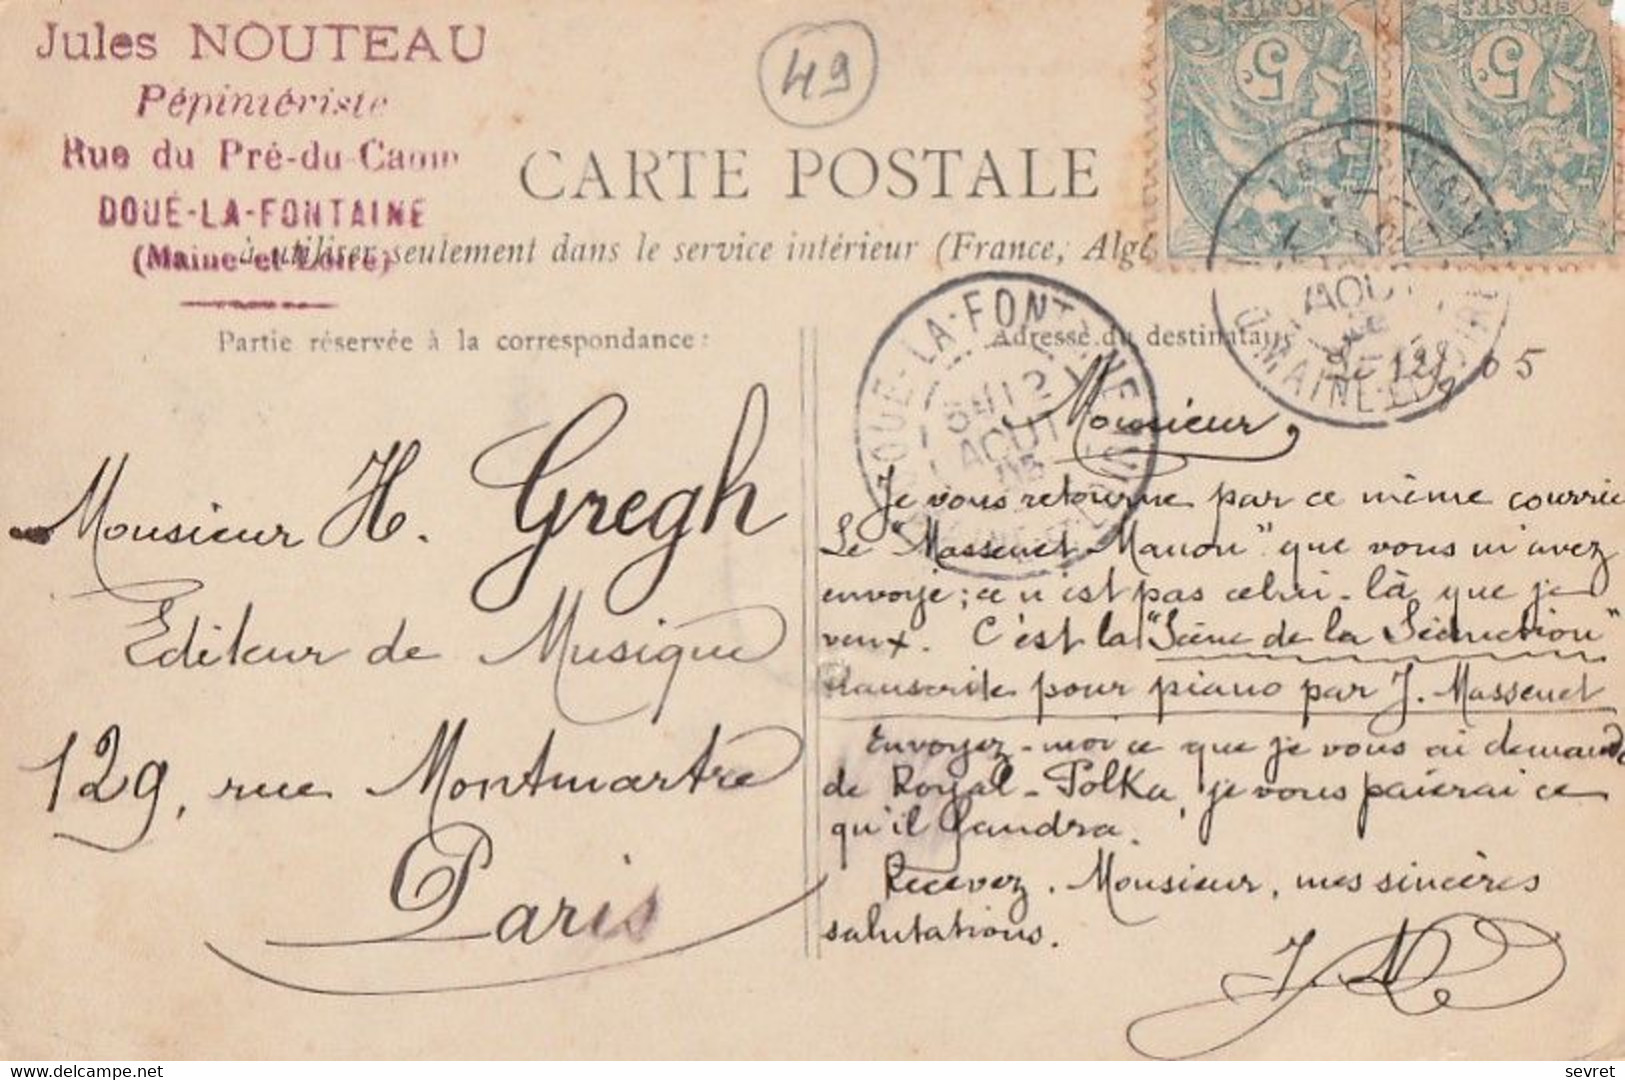 Jules NOUTEAU
Pépiniériste
Rue du Pré-du-Camp
DOUÉ-LA-FONTAINE
(Maine-et-Loire)
49
CARTE POSTALE
à utiliser seulement dans le service intérieur (France, Algé
POSTES
5c
POSTES
5c
Partie réservée à la correspondance:
Adresse du destinataire
DOUÉ-LA-FONTAINE
12
AOUT
05
AOUT
MAINE-ET-LOIRE
Monsieur H. Gregh
Editeur de Musique
129, rue Montmartre
Paris
05
Monsieur,
Je vous retourne par ce même courrie
Le "Massenet Manon" que vous m'avez
envoyé; ce n'est pas celui-là que je
veux. C'est la "Scène de la Séduction"
transcrite pour piano par J. Massenet
Envoyez-moi ce que je vous ai demandé
de Royal-Polka, je vous paierai ce
qu'il faudra.
Recevez, Monsieur, mes sincères
salutations.
J. N
sevret